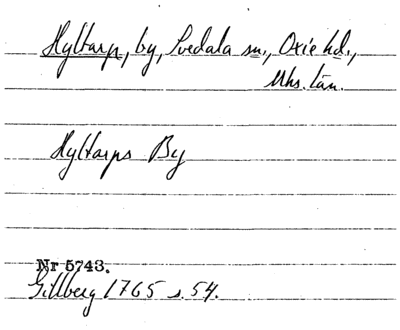 Hyltarp, by, Svedala sn., Oxie hd.,
Mhs. län.
Hyltarps By
Nr 5743.
Gillberg 1765 s. 54.